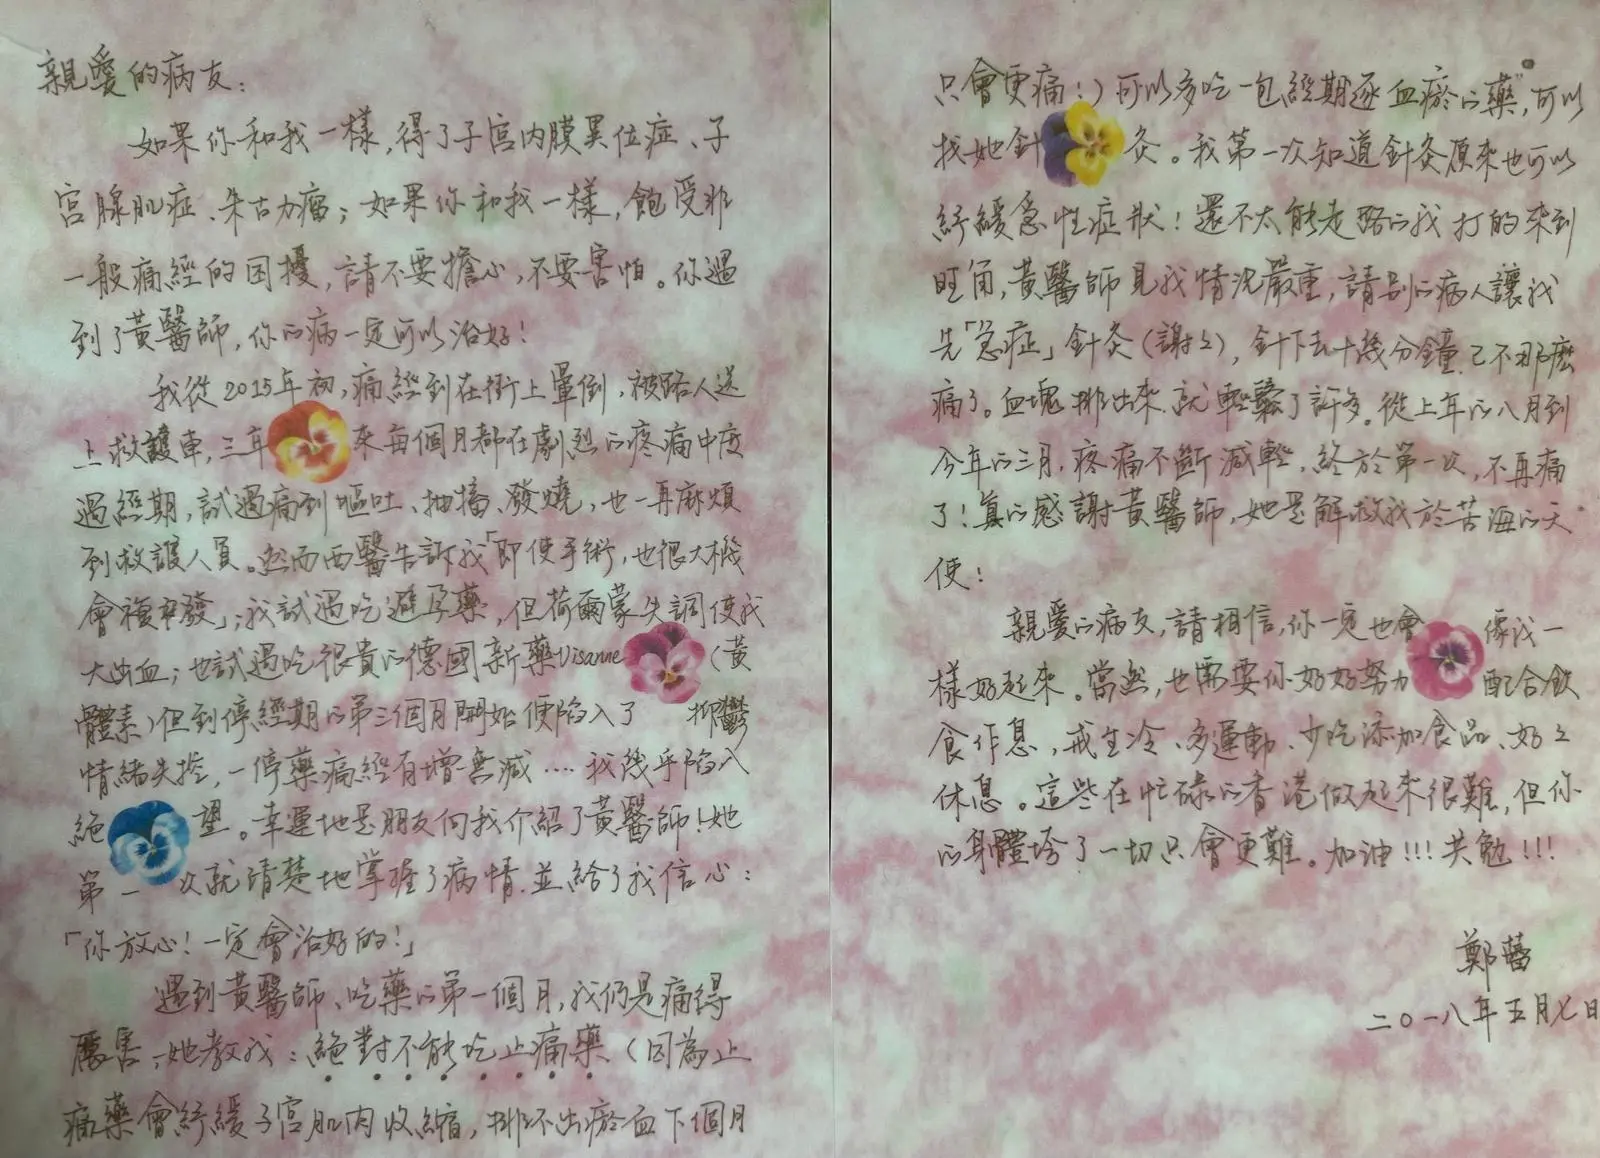 親愛的病友：
如果你和我一樣，得了子宮內膜異位症、子
宮腺肌症、朱古力瘤；如果你和我一樣，飽受非
一般痛經的困擾，請不要擔心，不要害怕。你遇
到了黃醫師，你的病一定可以治好！
我從2015年初，痛經到在街上暈倒，被路人送
上救護車，三年來每個月都在劇烈的疼痛中度
過經期，試過痛到嘔吐、抽搐、發燒，也一再麻煩
到救護人員。然而西醫告訴我「即使手術，也很大機
會複發」；我試過吃避孕藥，但荷爾蒙失調使我
大出血；也試過吃很貴的德國新藥Visanne（黃
體素）但到停經期的第三個月開始便陷入了抑鬱
情緒失控，一停藥痛經有增無減‥‥我幾乎陷入
絕望。幸運地是朋友向我介紹了黃醫師！她
第一次就清楚地掌握了病情，並給了我信心：
「你放心！一定會治好的！」
遇到黃醫師、吃藥的第一個月，我仍是痛得
厲害，她教我：絕對不能吃止痛藥（因為止
痛藥會紓緩子宮肌肉收縮，排不出瘀血下個月
只會更痛！）可以多吃一包經期逐血瘀的藥，可以
找她針灸。我第一次知道針灸原來也可以
紓緩急性症狀！還不太能走路的我打的來到
旺角，黃醫師見我情況嚴重，請別的病人讓我
先「急症」針灸（謝々），針下去十幾分鐘已不那麼
痛了。血塊排出來就輕鬆了許多。從上年的八月到
今年的三月，疼痛不斷減輕，終於第一次，不再痛
了！真的感謝黃醫師，她是解救我於苦海的天
使！
親愛的病友，請相信，你一定也會像我一
樣好起來。當然，也需要你好好努力配合飲
食作息，戒生冷、多運動、少吃添加食品、好々
休息。這些在忙碌的香港做起來很難，但你
的身體垮了一切只會更難。加油!!!共勉!!!
鄭蕾
二〇一八年五月七日